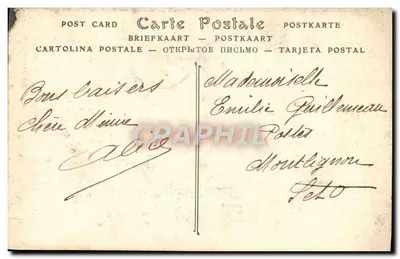 POST CARD Carte Postale POSTKARTE
BRIEFKAART — POSTKAART
CARTOLINA POSTALE — ОТКРЫТОЕ ПИСЬМО — TARJETA POSTAL
Bons baisers
chère Mimie
Alice
Mademoiselle
Emilie Guillemeau
Postes
Montlignon
S et O
CPAPHIL